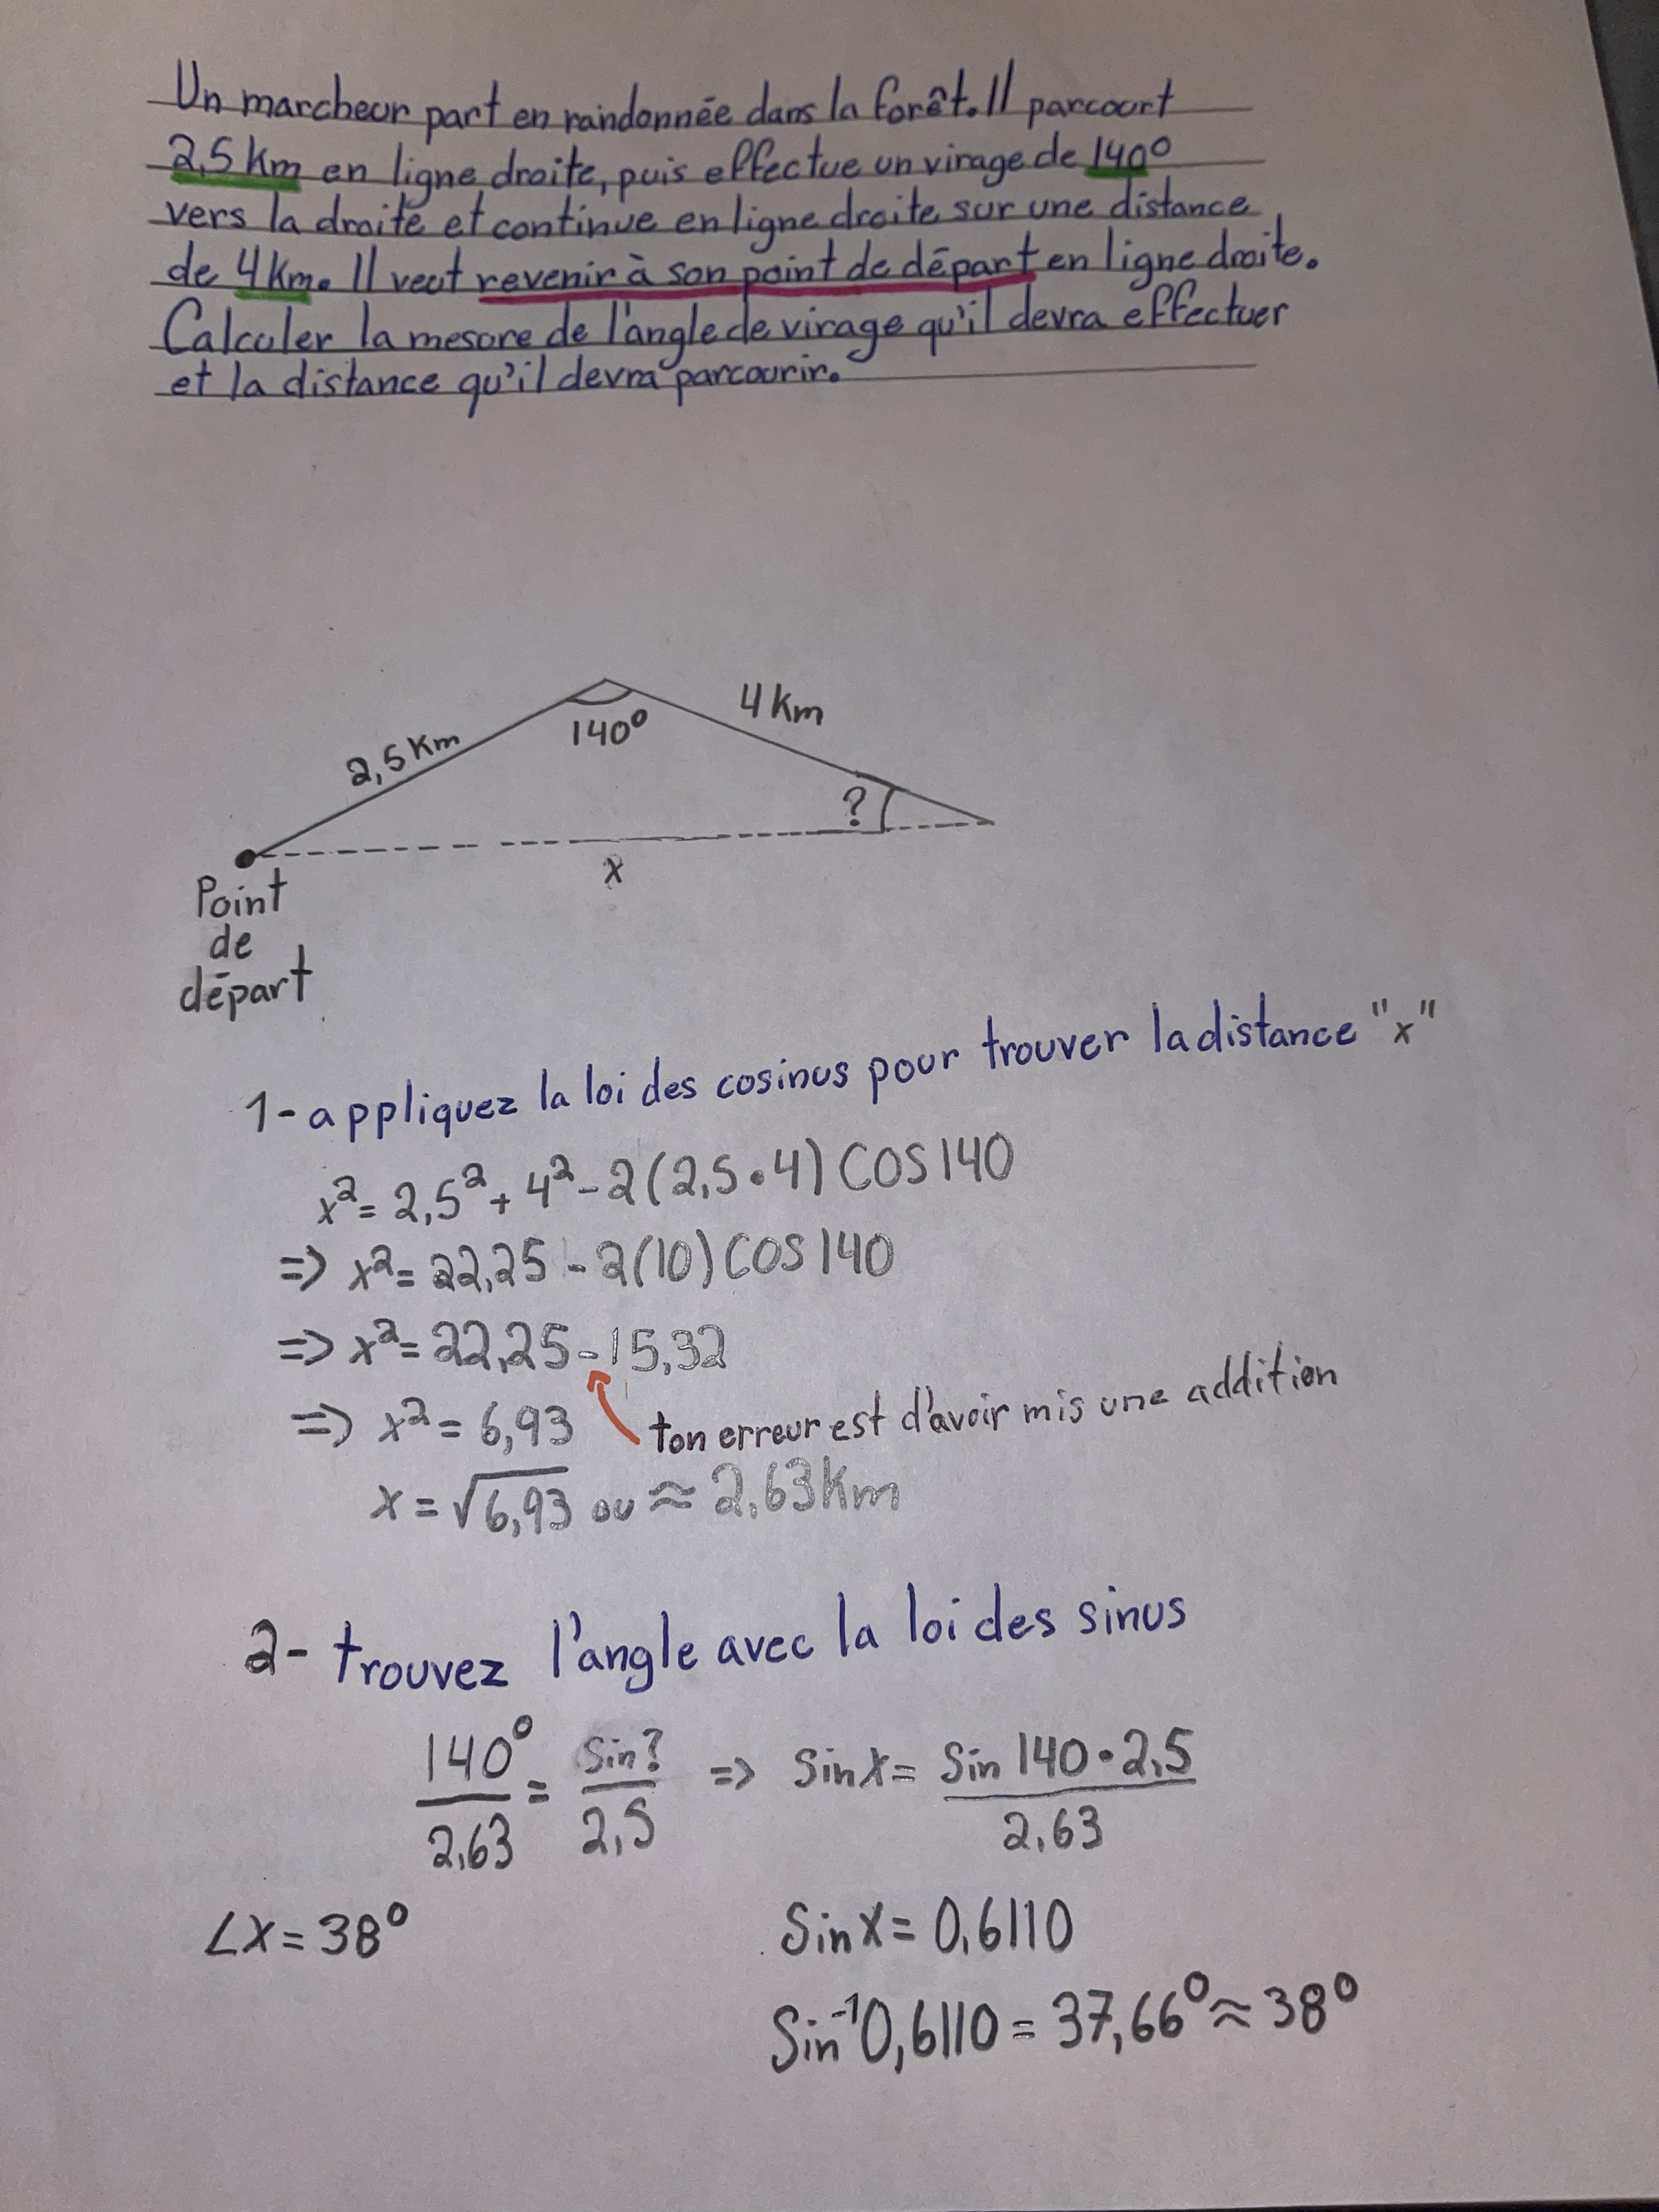 Un marcheur part en randonnée dans la forêt. Il parcourt
2,5 Km en ligne droite, puis effectue un virage de 140°
vers la droite et continue en ligne droite sur une distance
de 4 Km. Il veut revenir à son point de départ en ligne droite.
Calculer la mesure de l'angle de virage qu'il devra effectuer
et la distance qu'il devra parcourir.
2,5 Km
140°
4 Km
?
x
Point
de
départ
1- appliquez la loi des cosinus pour trouver la distance "x"
x² = 2,5² + 4² - 2(2,5•4) COS 140
=> x² = 22,25 - 2(10) COS 140
=> x² = 22,25 - 15,32
=> x² = 6,93
ton erreur est d'avoir mis une addition
x = √6,93 ou ≈ 2,63 Km
2- trouvez l'angle avec la loi des sinus
140°/2,63 = Sin?/2,5 => Sin X = Sin 140•2,5/2,63
∠X = 38°
Sin X = 0,6110
Sin⁻¹ 0,6110 = 37,66° ≈ 38°